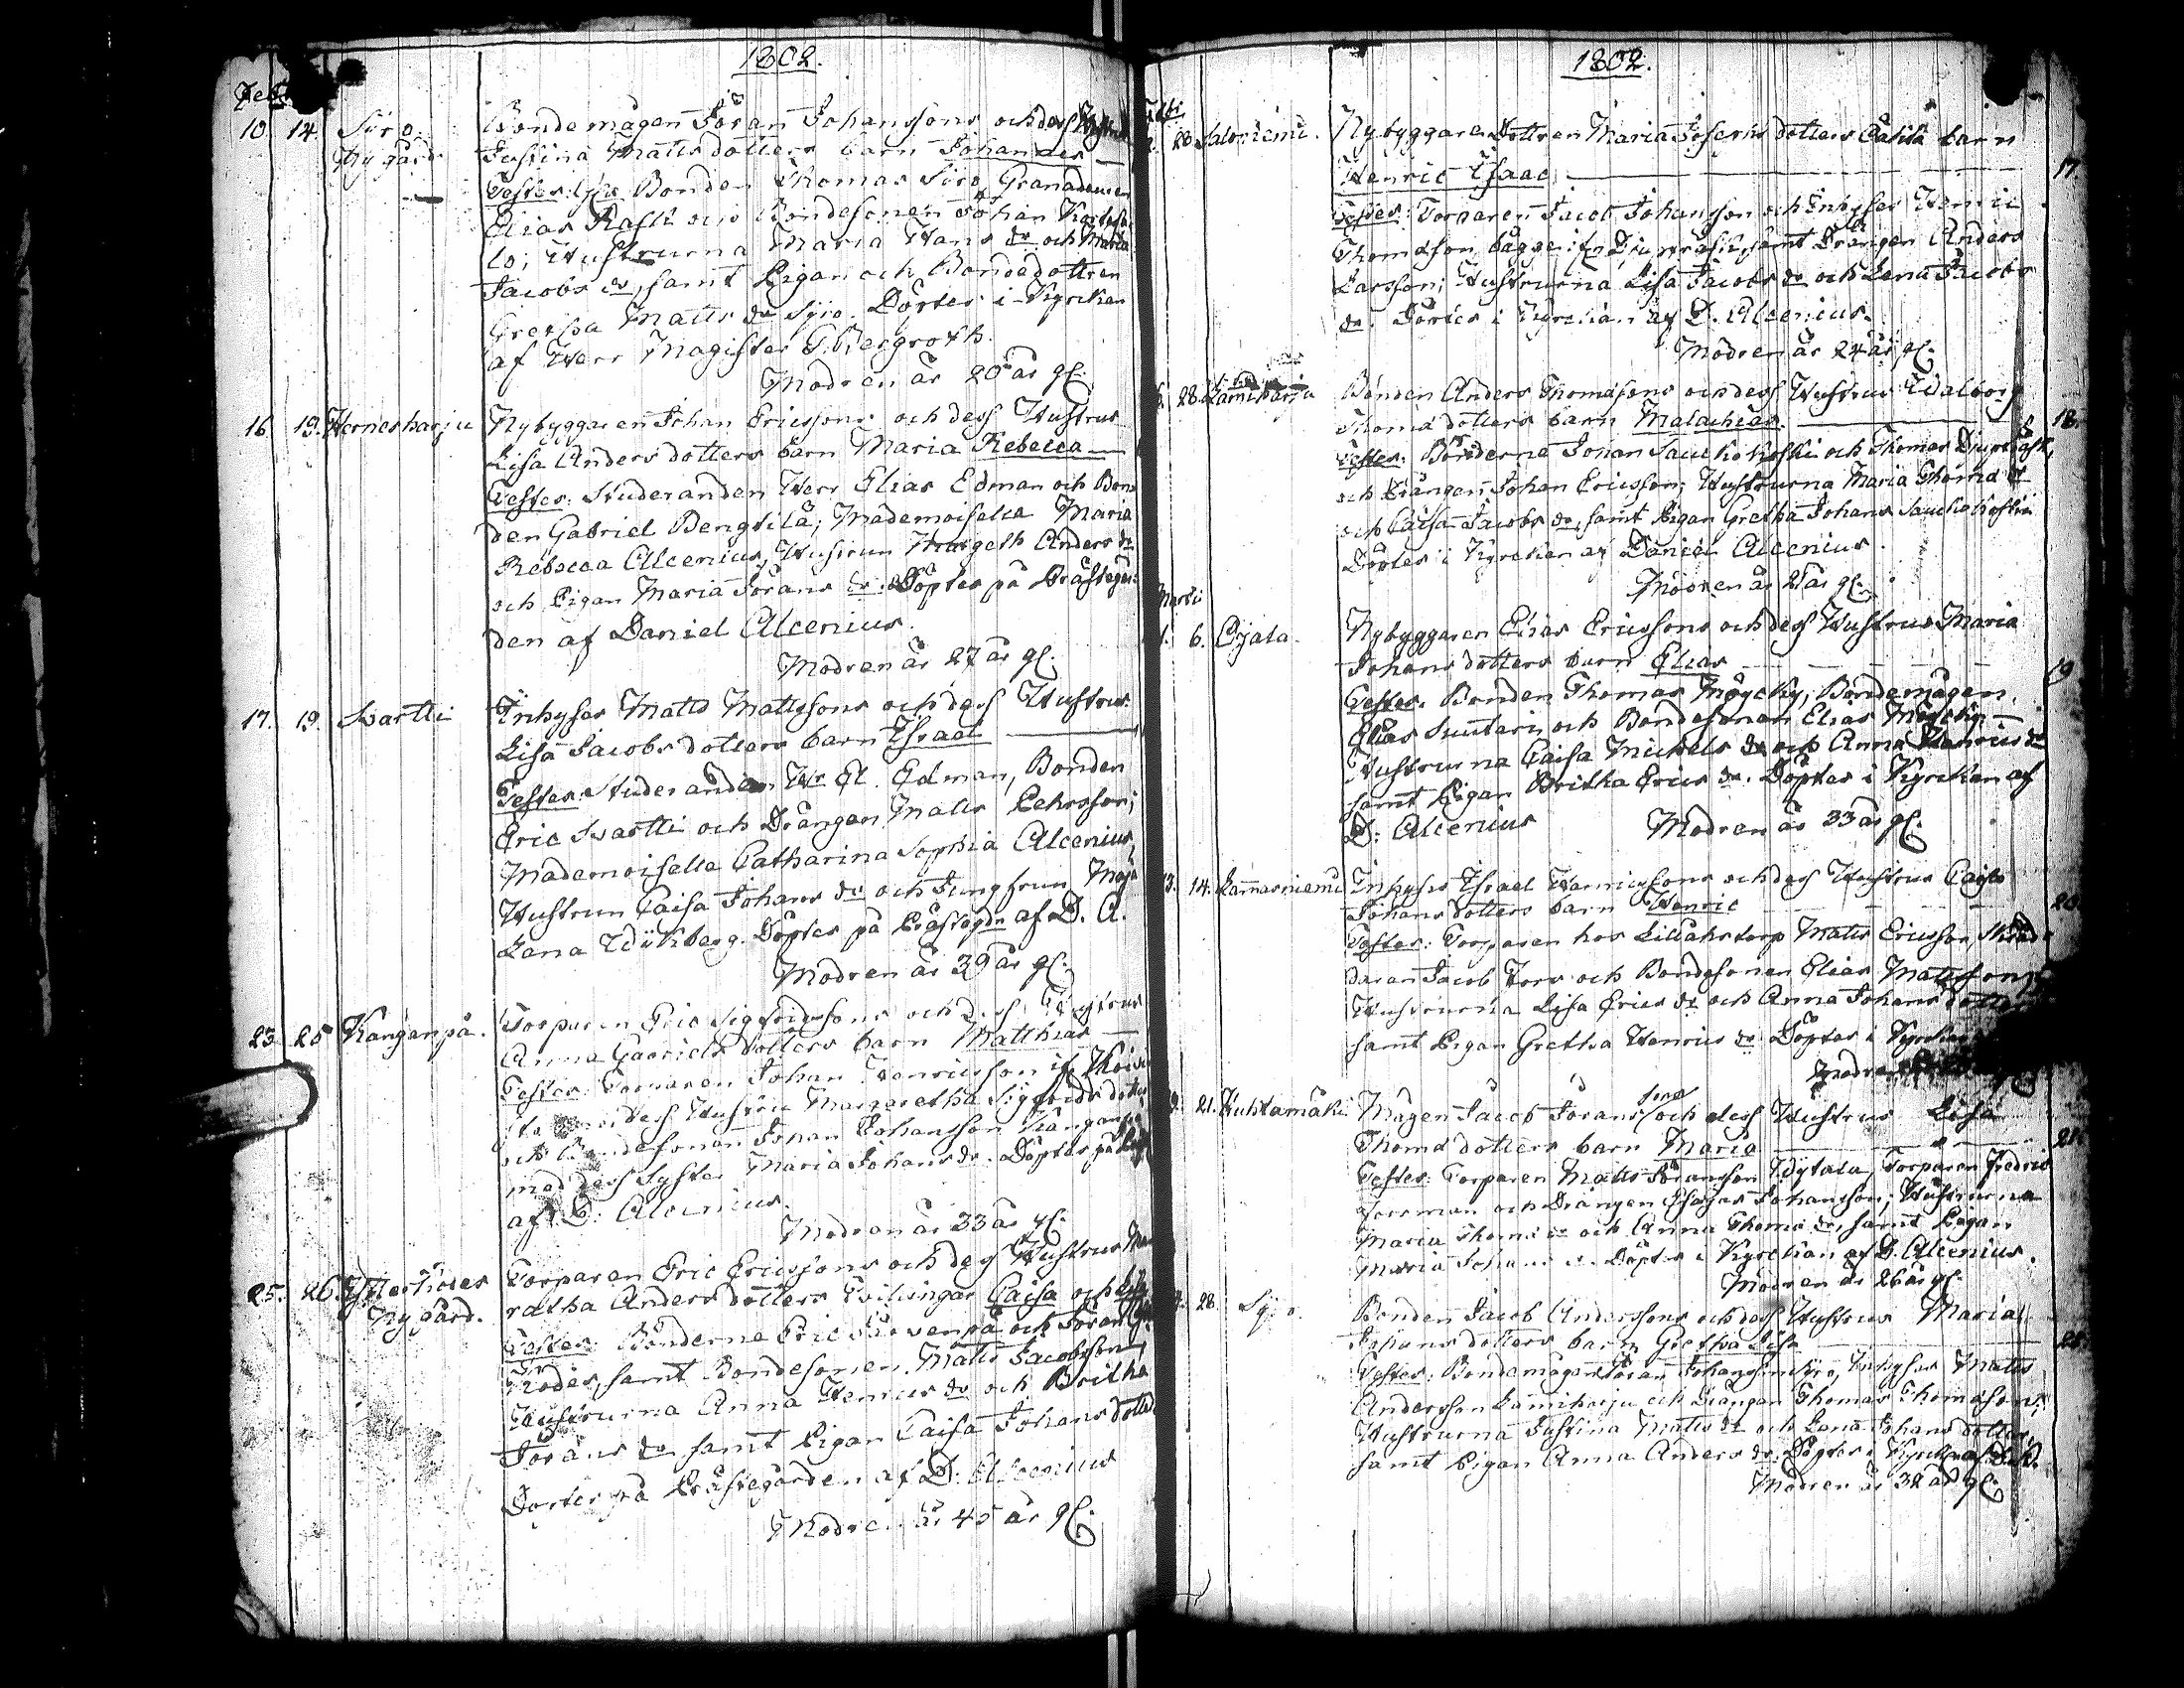 1802.
Feb:
10. 14. Syro Nygård
Bondemågen Jöran Johanssons och dess Hustrus
Justina Matts dotters barn Johannes —
Testes: Bonden Thomas Syro, Granadeuren
Elias Rask och Bondesonen Johan
lo; Hustrurna Maria Hans dr och Maria
Jacobs dr, samt Pigan och Bondedottren
Gretha Matts dr Syro. Döptes i Kyrckan
af Herr Magister G. Bergroth.
Modren är 20 år gl.
16. 19. Herneskarju
Nybyggaren Johan Ericssons och dess Hustrus
Lisa Anders dotters barn Maria Rebecca —
Testes: Studeranden Herr Elias Edman och Bon
den Gabriel Bengtilä; Mademoiselle Maria
Rebecca Alcenius, Hustrun Margeth Anders dr
och Pigan Maria Jörans dr. Döptes på Prästegår
den af Daniel Alcenius.
Modren är 27 år gl.
17. 19. Svartti
Inhyses Matts Mattssons och dess Hustrus
Lisa Jacobs dotters barn Israel —
Testes: Studeranden Hr El. Edman, Bonden
Eric Svartti och Drängen Matts Pehrsson;
Mademoiselle Catharina Sophia Alcenius,
Hustrun Caisa Johans dr och Jungfrun Maja
Lena Wikberg. Döptes på Prästegdn af D. A.
Modren är 39 år gl.
23. 25. Kanganpä.
Torparen Eric Sigfridssons och dess Hustrus
Anna Gabriels dotters barn Matthias —
Testes: Torparen Johan Henricsson
dess Hustru Margaretha Sigfrids dotter
och Bondesonen Johan Johansson Kanganpä
med dess Syster Maria Johans dr. Döptes på
af D. Alcenius.
Modren är 33 år gl.
25. 26. Nygård.
Torparen Eric Ericssons och dess Hustrus Mar
retha Anders dotters Tvillingar Caisa och
Testes: Bönderne Eric Järvenpä och Jöran
samt Bondesonen Matts Jacobsson,
Hustrurna Anna Henrics dr och Britha
Jörans dr samt Pigan Caisa Johans dotter
Döptes på Prästegården af D. Alcenius
Modren är 45 år gl.
1802.
Febr.
20. Saloniemi.
Nybyggare Dottren Maria Josephs dotters oäkta barn
Henric Isaac — 17.
Testes: Torparen Jacob Johansson och Inhyses Henric
Thomasson bägge ifr. Djupträsk samt Drängen Anders
Larsson; Hustrurna Lisa Jacobs dr och Lena Jacobs
dr. Döptes i Kyrckan af D. Alcenius.
Modren är 24 år gl.
28. Lamiharju
Bonden Anders Thomassons och dess Hustrus Walborg
Thomæ dotters barn Malachias. — 18.
Testes: Bönderne Johan Saukokoski och Thomas Djupträsk,
och Drängen Johan Ericsson; Hustrurna Maria Thomæ dr
och Caisa Jacobs dr, samt Pigan Gretha Johans Saukokoski
Döptes i Kyrckan af Daniel Alcenius.
Modren är 21 år gl.
Martii
1. 6. Ojala.
Nybyggaren Elias Ericssons och dess Hustrus Maria
Johans dotters barn Elias — 19
Testes. Bonden Thomas Möycky, Bondemågen
Elias Suutari, och Bondesonen Elias Möycky —
Hustrurna Caisa Michels dr och Anna Henrics dr
samt Pigan Britha Erics dr. Döptes i Kyrckan af
D: Alcenius Modren är 33 år gl.
13. 14. Lamasniemi
Inhyses Israel Henricssons och dess Hustrus Caisa
Johans dotters barn Henric — 20.
Testes: Torparen hos Lillåhstorp Matts Ericsson, Skräd
daren Jacob Fors och Bondesonen Elias Mattsson;
Hustrurna Lisa Erics dr och Anna Johans dotter
samt Pigan Gretha Henrics dr. Döptes i Kyrckan
Modren
21. Huhtamäki
Mågen Jacob Jöranssons och dess Hustrus Lisa
Thomæ dotters barn Maria — 21.
Testes: Torparen Matts Jöransson Wytala, Torparen Fredric
Forsman och Drängen Isajas Johansson; Hustrurna
Maria Thomæ dr och Anna Thomæ dr, samt Pigan
Maria Johans dr. Döptes i Kyrckan af D. Alcenius.
Modren är 26 år gl.
28. Syro.
Bonden Jacob Anderssons och dess Hustrus Maria
Johans dotters barn Gretha Lisa — 22.
Testes: Bondemågen Jöran Johansson Syro, Inhyses Matts
Andersson Lamiharju och Drängen Thomas Thomasson;
Hustrurna Justina Matts dr och Lena Johans dotter,
samt Pigan Anna Anders dr. Döptes i Kyrckan af D. A.
Modren är 32 år gl.